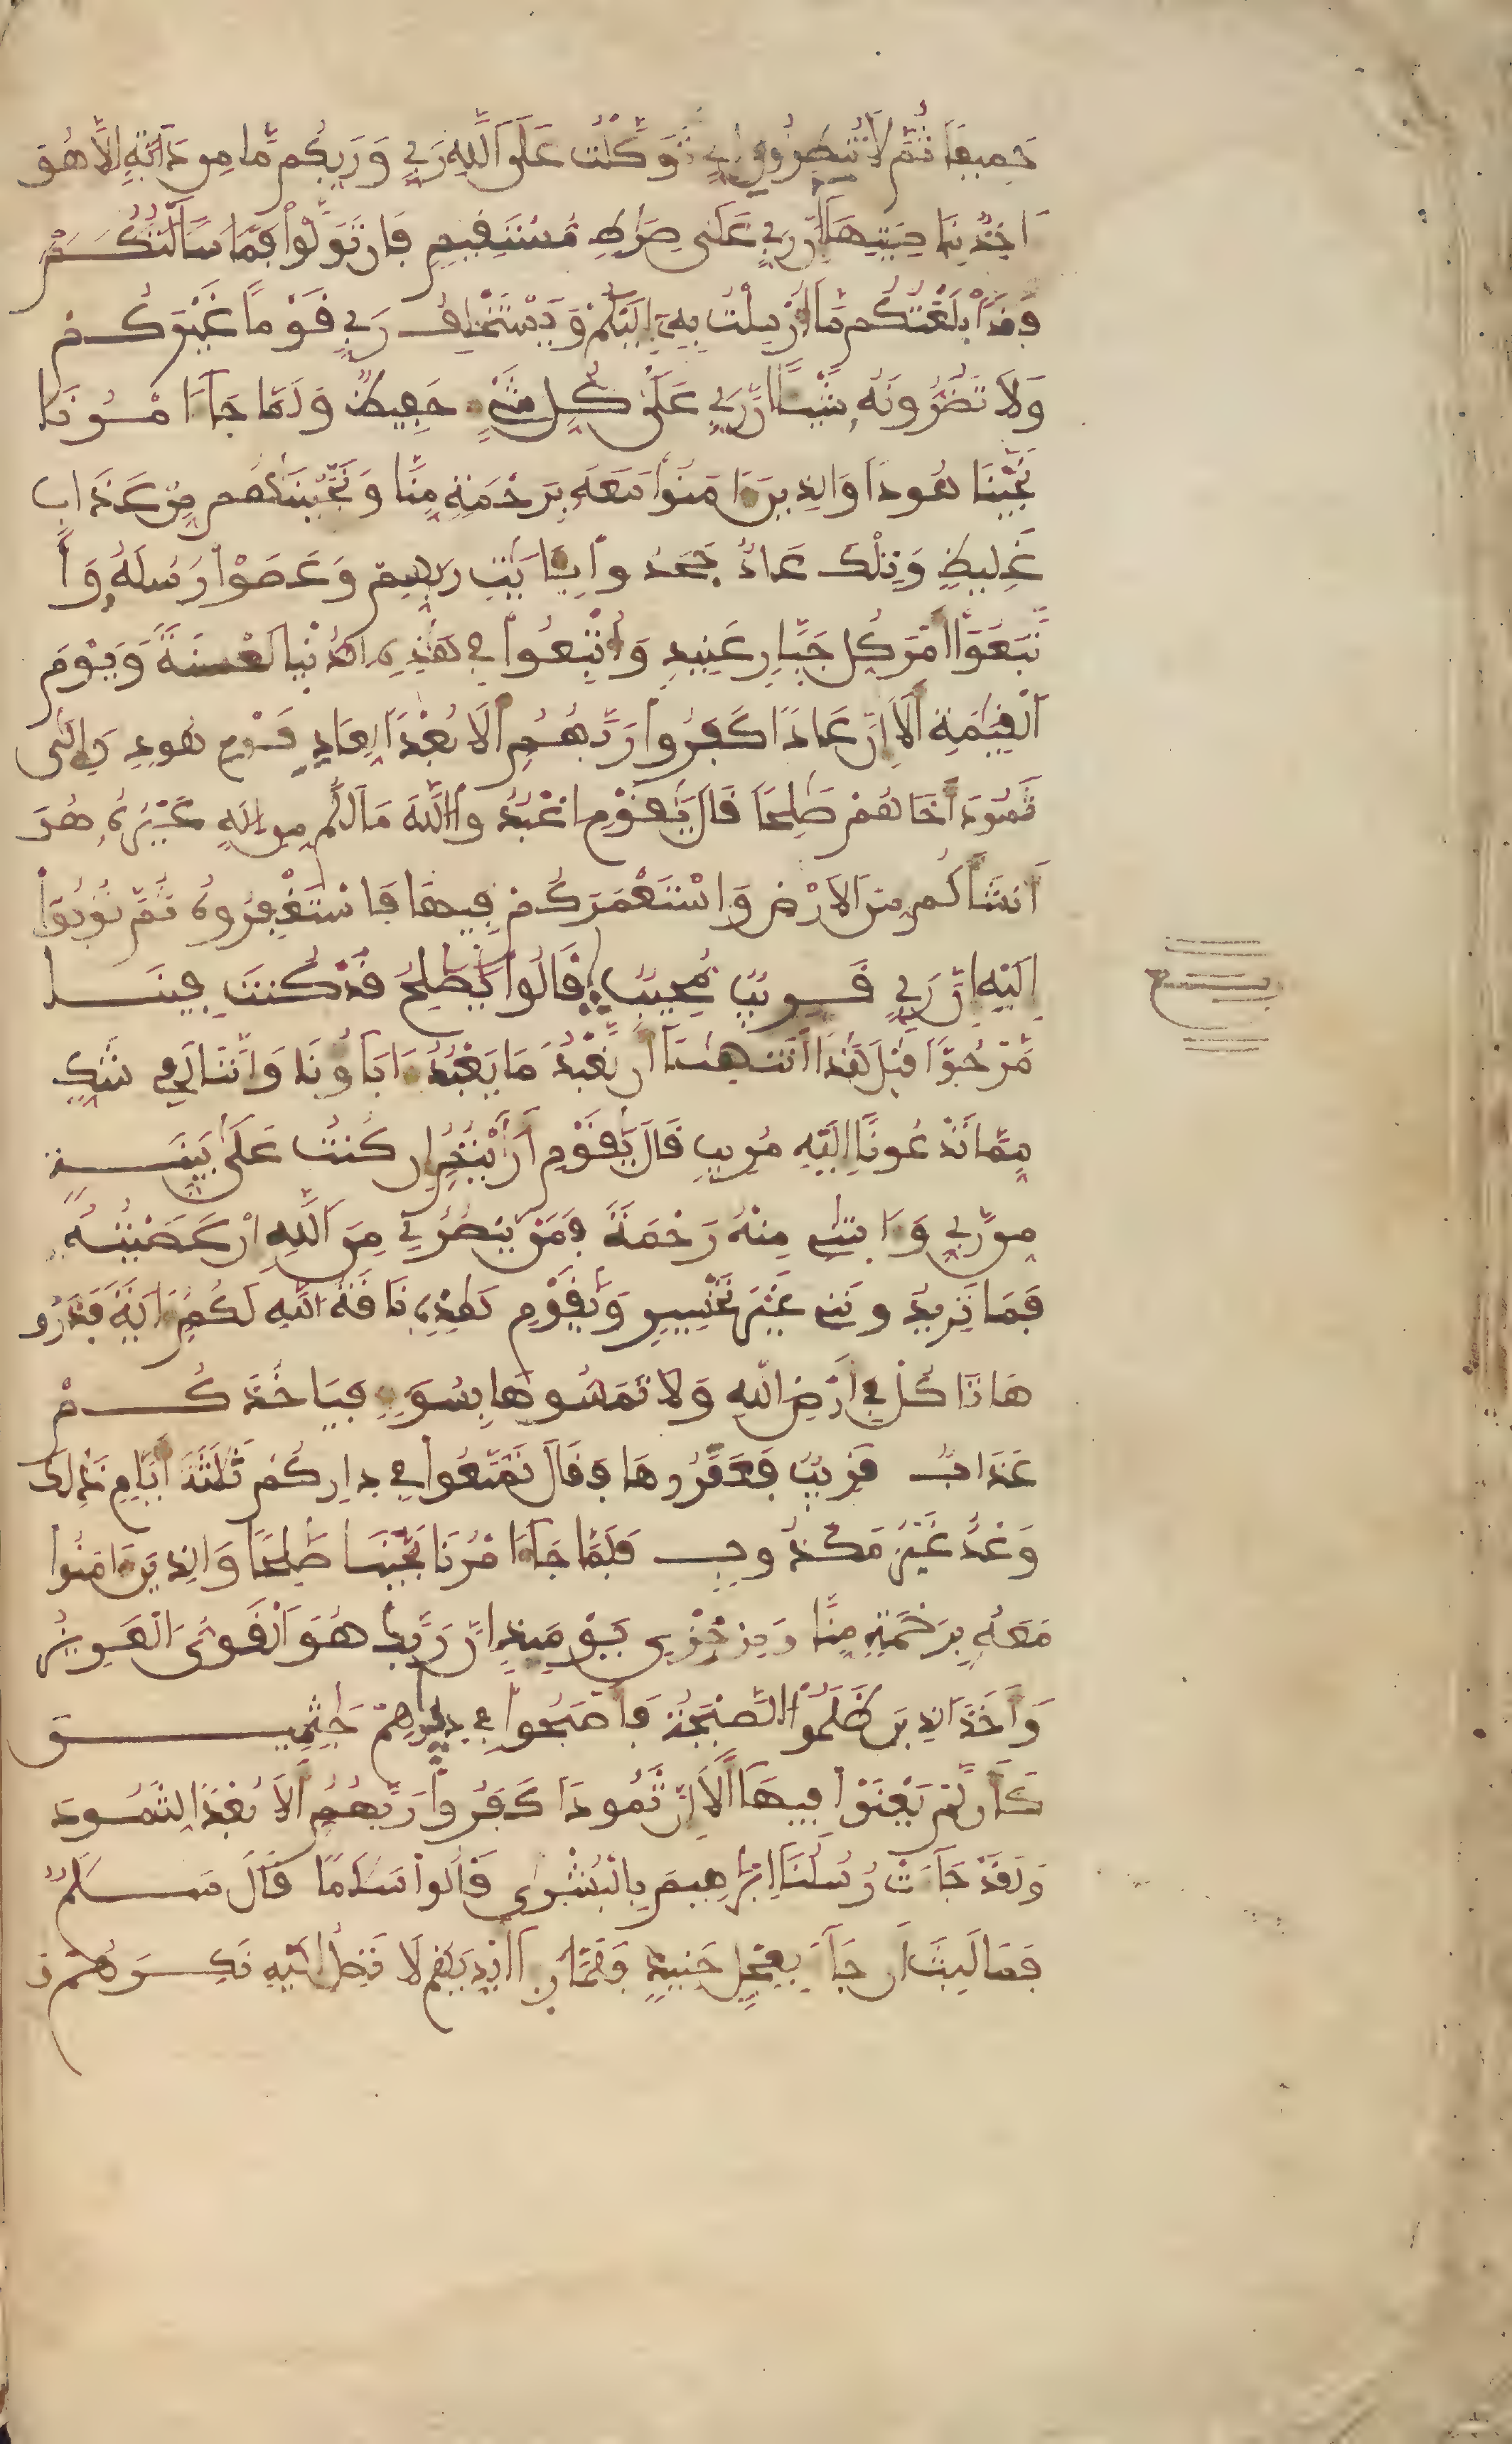 جَمِيعًا ثُمَّ لَا تُنظِرُونِ إِنِّي تَوَكَّلْتُ عَلَى اَللَّهِ رَبِّي وَرَبِّكُم مَّا مِن دَآبَّةٍ اِلَّا هُوَ
ءَاخِذُ بِنَاصِيَتِهَا إِنَّ رَبِّي عَلَى صِرَٰطٍ مُّسْتَقِيمٍ فَإِن تَوَلَّوْاْ فَمَا سَأَلْتُكُمْ
فَقَدَ اَبْلَغْتُكُم مَّا أُرْسِلْتُ بِهِ إِلَيْكُمْ وَيَسْتَخْلِفُ رَبِّي قَوْمًا غَيْرَكُمْ
وَلَا تَضُرُّونَهُ شَيْـًٔا إِنَّ رَبِّي عَلَىٰ كُلِّ شَيْءٍ حَفِيظٌ وَلَمَّا جَآءَ امْرُنَا
نَجَّيْنَا هُودًا وَالذِينَ ءَامَنُواْ مَعَهُ بِرَحْمَةٍ مِّنَّا وَنَجَّيْنَٰهُم مِّنْ عَذَابٍ
غَلِيظٍ وَتِلْكَ عَادٌ جَحَدُواْ بِـَٔايَٰتِ رَبِّهِمْ وَعَصَوْاْ رُسُلَهُ وَا
تَّبَعُوٓاْ أَمْرَ كُلِّ جَبّارٍ عَنِيدٍ وَأُتْبِعُواْ فِي هَٰذِهِ الدُّنْيَا لَعْنَةً وَيَوْمَ
اَلْقِيَٰمَةِ أَلَا إِنَّ عَادًا كَفَرُواْ رَبَّهُمُ أَلَا بُعْدًا لِّعَادٍ قَوْمِ هُودٍ وَإِلَىٰ
ثَمُودَ أَخَاهُمْ صَٰلِحًا قَالَ يَٰقَوْمِ اعْبُدُواْ اللَّهَ مَا لَكُم مِّنِ اِلَٰهٍ غَيْرُهُ هُوَ
أَنشَأَكُم مِّنَ الَارْضِ وَاسْتَعْمَرَكُمْ فِيهَا فَاسْتَغْفِرُوهُ ثُمَّ تُوبُوٓاْ
إِلَيْهِ إِنَّ رَبِّي قَرِيبٌ مُّجِيبٌ قَالُواْ يَٰصَٰلِحُ قَدْ كُنتَ فِينَا
مَرْجُوًّا قَبْلَ هَٰذَا أَتَنْهَىٰنَا أَن نَّعْبُدَ مَا يَعْبُدُ ءَابَآؤُنَا وَإِنَّنَا لَفِي شَكٍّ
مِّمَّا تَدْعُونَآ إِلَيْهِ مُرِيبٍ قَالَ يَٰقَوْمِ أَرَٰيْتُمُ إِن كُنتُ عَلَىٰ بَيِّنَةٍ
مِّن رَّبِّي وَءَاتَىٰنِي مِنْهُ رَحْمَةً فَمَنْ يَّنصُرُنِي مِنَ اَللَّهِ إِنْ عَصَيْتُهُ
فَمَا تَزِيدُونَنِي غَيْرَ تَخْسِيرٍ وَيَٰقَوْمِ هَٰذِهِ نَاقَةُ اللَّهِ لَكُمُ ءَايَةً فَذَرُو
هَا تَاكُلْ فِي أَرْضِ اللَّهِ وَلَا تَمَسُّوهَا بِسُوٓءٍ فَيَاخُذَكُمْ
عَذَابٌ قَرِيبٌ فَعَقَرُوهَا فَقَالَ تَمَتَّعُواْ فِي دِارِكُمْ ثَلَٰثَةَ أَيَّامٍ ذَٰلِكَ
وَعْدٌ غَيْرُ مَكْذُوبٍ فَلَمَّا جَآءَ امْرُنَا نَجَّيْنَا صَٰلِحًا وَالذِينَ ءَامَنُواْ
مَعَهُ بِرَحْمَةٍ مِّنَّا وَمِنْ خِزْيِ يَوْمَئِذٍ إِنَّ رَبَّكَ هُوَ اَلْقَوِيُّ الْعَزِيزُ
وَأَخَذَ الذِينَ ظَلَمُواْ الصَّيْحَةُ فَأَصْبَحُواْ فِي دِيٰرِهِمْ جَٰثِمِينَ
كَأَن لَّمْ يَغْنَوْاْ فِيهَا أَلَا إِنَّ ثَمُودًا كَفَرُواْ رَبَّهُمُ أَلَا بُعْدًا لِّثَمُودَ
وَلَقَدْ جَآءَتْ رُسُلُنَا إِبْرَٰهِيمَ بِالْبُشْرَىٰ قَالُواْ سَلَٰمًا قَالَ سَلَٰمٌ
فَمَا لَبِثَ أَن جَآءَ بِعِجْلٍ حَنِيذٍ فَلَمَّا رَءَآ أَيْدِيَهُمْ لَا تَصِلُ إِلَيْهِ نَكِرَهُمْ
ربع